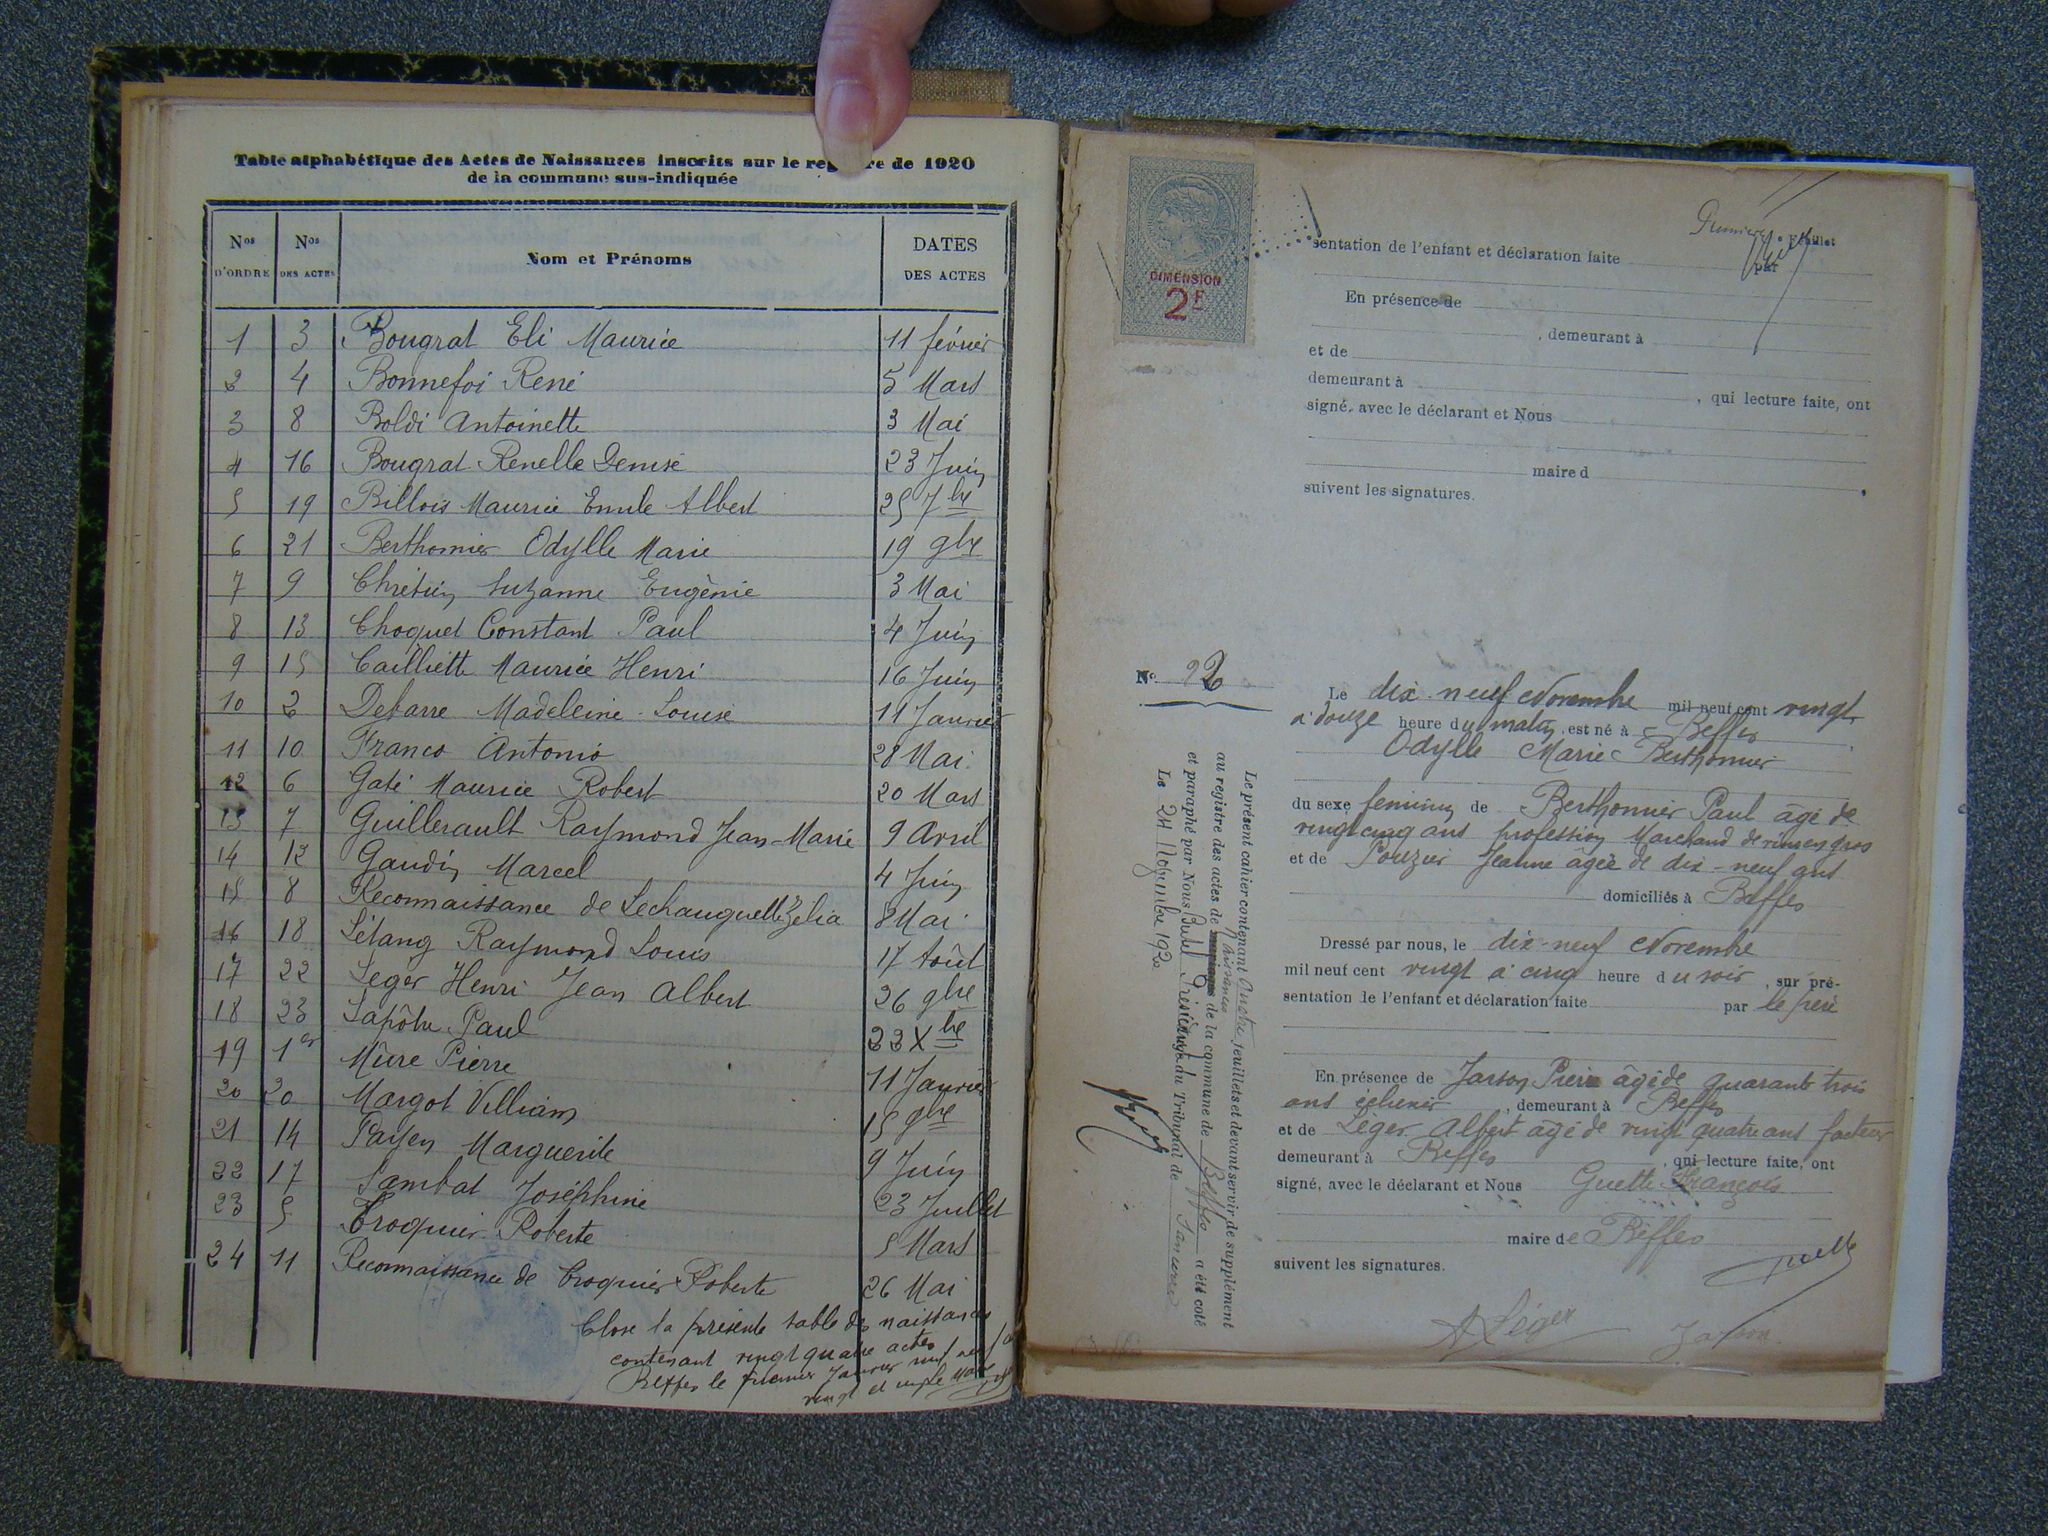 Table alphabétique des Actes de Naissances inscrits sur le re re de 1920
de la commune sus-indiquée
Nos D'ORDRE Nos DES ACTES Nom et Prénoms DATES DES ACTES
1 3 Bougrat Eli Maurice 11 février
2 4 Bonnefoi René 5 Mars
3 8 Boldi Antoinette 3 Mai
4 16 Bougrat Renelle Denise 23 Juin
5 19 Billois Maurice Emile Albert 25 7bre
6 21 Berthomier Odylle Marie 19 9bre
7 9 Chrétien Suzanne Eugènie 3 Mai
8 13 Choquet Constant Paul 4 Juin
9 15 Cailliette Maurice Henri 16 Juin
10 2 Debarre Madeleine Louise 11 Janvier
11 10 Franco Antonio 28 Mai
12 6 Gaté Maurice Robert 20 Mars
13 7 Guillerault Raymond Jean-Marie 9 Avril
14 12 Gaudin Marcel 4 Juin
15 8 Reconnaissance de Lechauguette Zelia 8 Mai
16 18 Létang Raymond Louis 17 Août
17 22 Leger Henri Jean Albert 26 9bre
18 23 Lapôtre Paul 22 Xbre
19 1er Mûre Pierre 11 Janvier
20 20 Margot Villiam 15 9bre
21 14 Payen Marguerite 9 Juin
22 17 Sambat Joséphine 23 Juillet
23 5 Croquier Roberte 5 Mars
24 11 Reconnaissance de Croquier Roberte 26 Mai
Close la présente table de naissances
contenant vingt quatre actes
Beffes le premier Janvier mil neuf
vingt et un le Maire
DIMENSION
2F
Feuillet
sentation de l'enfant et déclaration faite par
En présence de
, demeurant à
et de
demeurant à , qui lecture faite, ont
signé, avec le déclarant et Nous
maire d
suivent les signatures.
No 22
Le dix-neuf Novembre mil neuf cent vingt
à douze heure du matin, est né à Beffes
Odylle Marie Berthomier
du sexe féminin de Berthomier Paul âgé de
vingt cinq ans profession Marchand de vins en gros
et de Pouzier Jeanne âgée de dix-neuf ans
domiciliés à Beffes
Dressé par nous, le dix-neuf Novembre
mil neuf cent vingt à cinq heure du soir, sur pré-
sentation de l'enfant et déclaration faite par le père
En présence de Jarson Pierre âgé de quarante trois
ans , demeurant à Beffes
et de Léger Albert âgé de vingt quatre ans facteur
demeurant à Beffes, qui lecture faite, ont
signé, avec le déclarant et Nous Guette François
maire de Beffes
suivent les signatures.
Guette
A Léger Jarson
Le présent cahier contenant feuillets et devant servir de supplément
au registre des actes de naissances de la commune de Beffes a été coté
et paraphé par Nous Président du Tribunal de Sancerre
Le 24 Novembre 1920